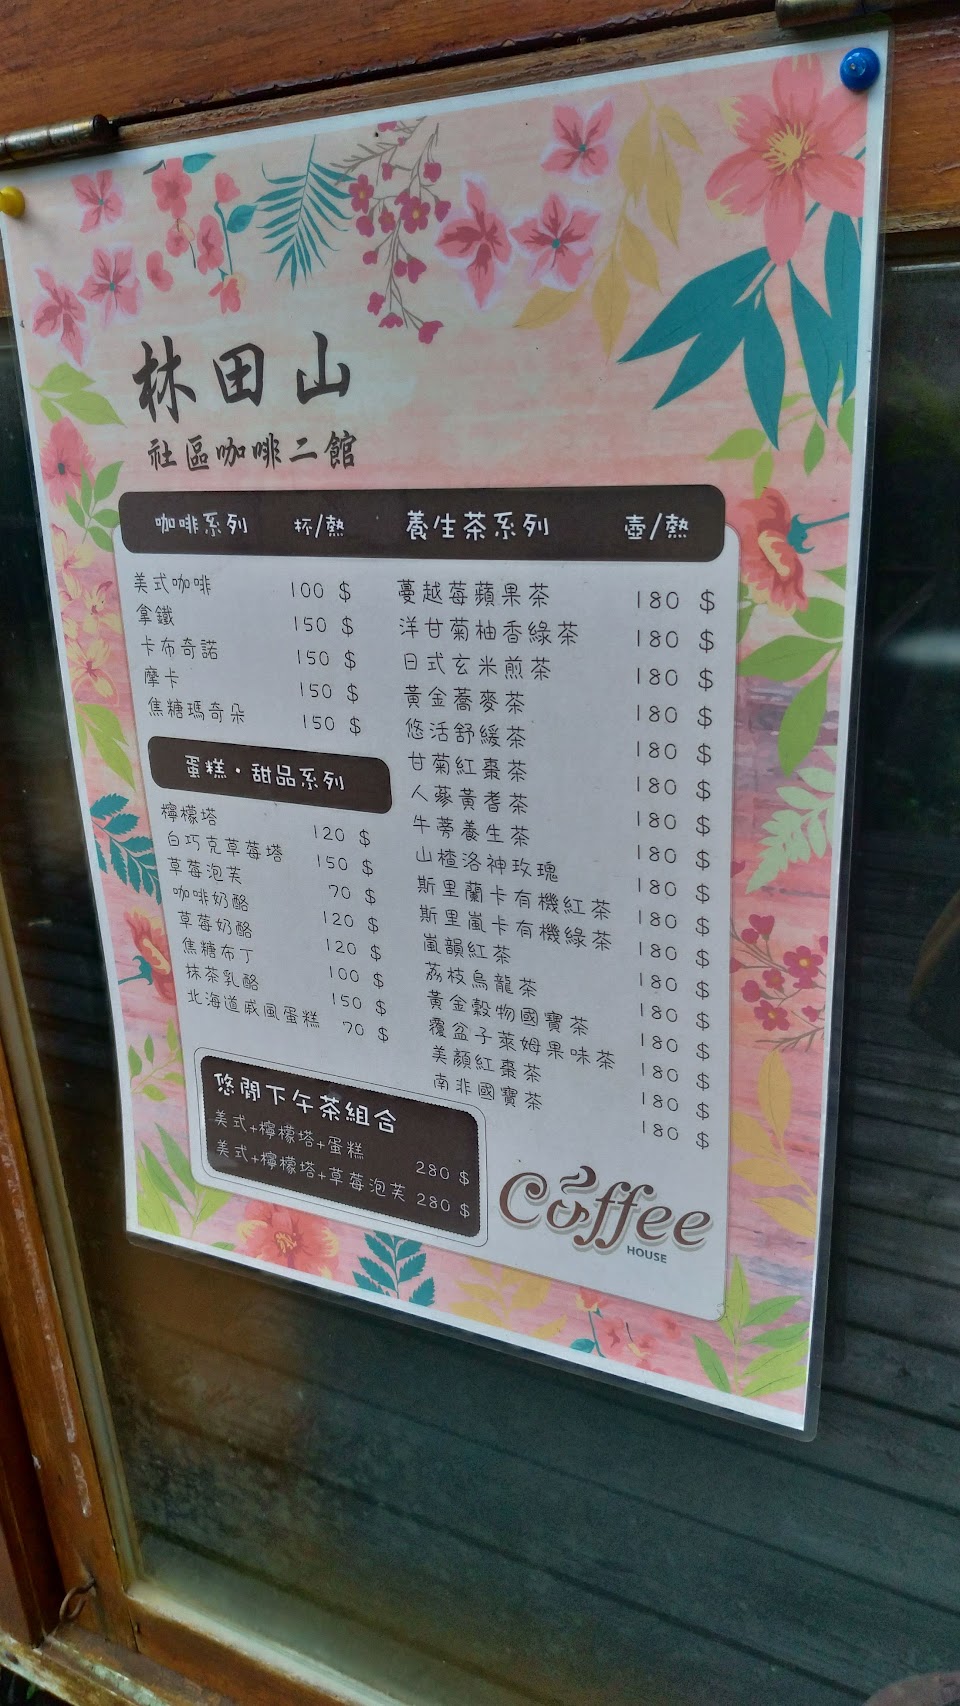 林田山
社區咖啡二館
咖啡系列 杯/熱
美式咖啡 100 $
拿鐵 150 $
卡布奇諾 150 $
摩卡 150 $
焦糖瑪奇朵 150 $
蛋糕·甜品系列
檸檬塔 120 $
白巧克草莓塔 150 $
草莓泡芙 70 $
咖啡奶酪 120 $
草莓奶酪 120 $
焦糖布丁 100 $
抹茶乳酪 150 $
北海道戚風蛋糕 70 $
悠閒下午茶組合
美式+檸檬塔+蛋糕 280 $
美式+檸檬塔+草莓泡芙 280 $
養生茶系列 壺/熱
蔓越莓蘋果茶 180 $
洋甘菊柚香綠茶 180 $
日式玄米煎茶 180 $
黃金蕎麥茶 180 $
悠活舒緩茶 180 $
甘菊紅棗茶 180 $
人蔘黃耆茶 180 $
牛蒡養生茶 180 $
山楂洛神玫瑰 180 $
斯里蘭卡有機紅茶 180 $
斯里嵐卡有機綠茶 180 $
嵐韻紅茶 180 $
荔枝烏龍茶 180 $
黃金穀物國寶茶 180 $
覆盆子萊姆果味茶 180 $
美顏紅棗茶 180 $
南非國寶茶 180 $
Coffee
HOUSE